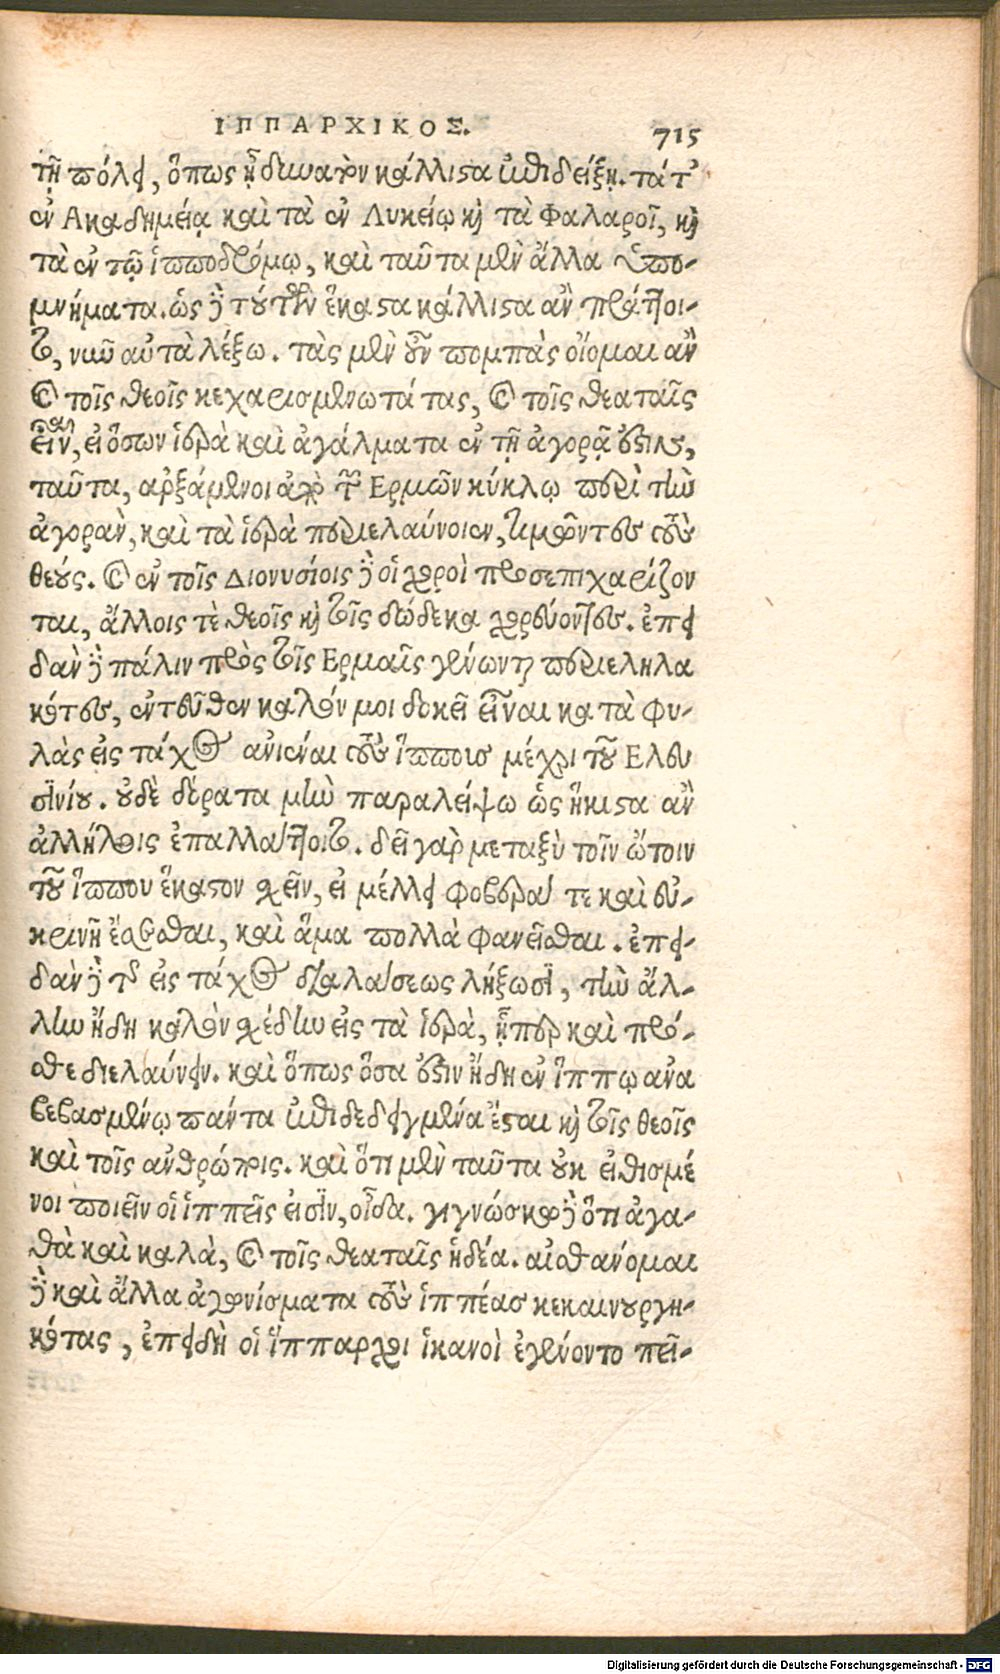 ΙΠΠΑΡΧΙΚΟΣ.
715
τῇ πόλει, ὅπως ᾗ δυνατὸν κάλλιστα ἐπιδείξῃ. τά τ'
ἐν Ακαδημείᾳ καὶ τὰ ἐν Λυκείῳ καὶ τὰ Φαλαροῖ, καὶ
τὰ ἐν τῷ ἱπποδρόμῳ, καὶ ταῦτα μὲν ἄλλα ὑπο-
μνήματα. ὡς δὲ τούτων ἕκαστα κάλλιστα ἂν πράττοι-
το, νῦν αὐτὰ λέξω. τὰς μὲν οὖν πομπὰς οἴομαι ἂν
καὶ τοῖς θεοῖς κεχαρισμενωτάτας, καὶ τοῖς θεαταῖς
εἶναι, εἰ ὅσων ἱερὰ καὶ ἀγάλματα ἐν τῇ ἀγορᾷ ἐστι,
ταῦτα, ἀρξάμενοι ἀπὸ τῶν Ερμῶν κύκλῳ περὶ τὴν
ἀγορὰν, καὶ τὰ ἱερὰ περιελαύνοιεν, τιμῶντες τοὺς
θεούς. καὶ ἐν τοῖς Διονυσίοις δὲ οἱ χοροὶ προσεπιχαρίζον
ται, ἄλλοις τὲ θεοῖς καὶ τοῖς δώδεκα χορεύοντες. ἐπει
δὰν δὲ πάλιν πρὸς τοῖς Ερμαῖς γένωνται περιεληλα
κότες, ἐντεῦθεν καλόν μοι δοκεῖ εἶναι κατὰ φυ-
λὰς εἰς τάχος ἀνιέναι τοὺς ἵπποις μέχρι τοῦ Ελευ
σινίου. οὐδὲ δόρατα μὴν παραλείψω ὡς ἥκιστα ἂν
ἀλλήλοις ἐπαλλάττοιτο. δεῖ γὰρ μεταξὺ τοῖν ὤτοιν
τοῦ ἵππου ἕκαστον σχεῖν, εἰ μέλλει φοβερά τε καὶ εὐ-
κρινῆ ἔσεσθαι, καὶ ἅμα πολλὰ φανεῖσθαι. ἐπει-
δὰν δὲ τοῦ εἰς τάχος διαλάσεως λήξωσι, τὴν ἄλ-
λην ἤδη καλὸν σχέδην εἰς τὰ ἱερὰ, ᾗπερ καὶ πρό-
σθε διελαύνειν. καὶ ὅπως ὅσα ἐστιν ἤδη ἐν ἵππῳ ἀνα
βεβασμένῳ πάντα ἐπιδεδειγμένα ἔσται καὶ τοῖς θεοῖς
καὶ τοῖς ἀνθρώποις. καὶ ὅτι μὲν ταῦτα οὐκ εἰθισμέ
νοι ποιεῖν οἱ ἱππεῖς εἰσὶν, οἶδα. γιγνώσκω δὲ ὅτι ἀγα-
θὰ καὶ καλὰ, καὶ τοῖς θεαταῖς ἡδέα. αἰσθανόμαι
δὲ καὶ ἄλλα ἀγωνίσματα τοὺς ἱππέας κεκαινουργη-
κότας, ἐπειδὴ οἱ ἵππαρχοι ἱκανοὶ ἐγένοντο πεῖ-